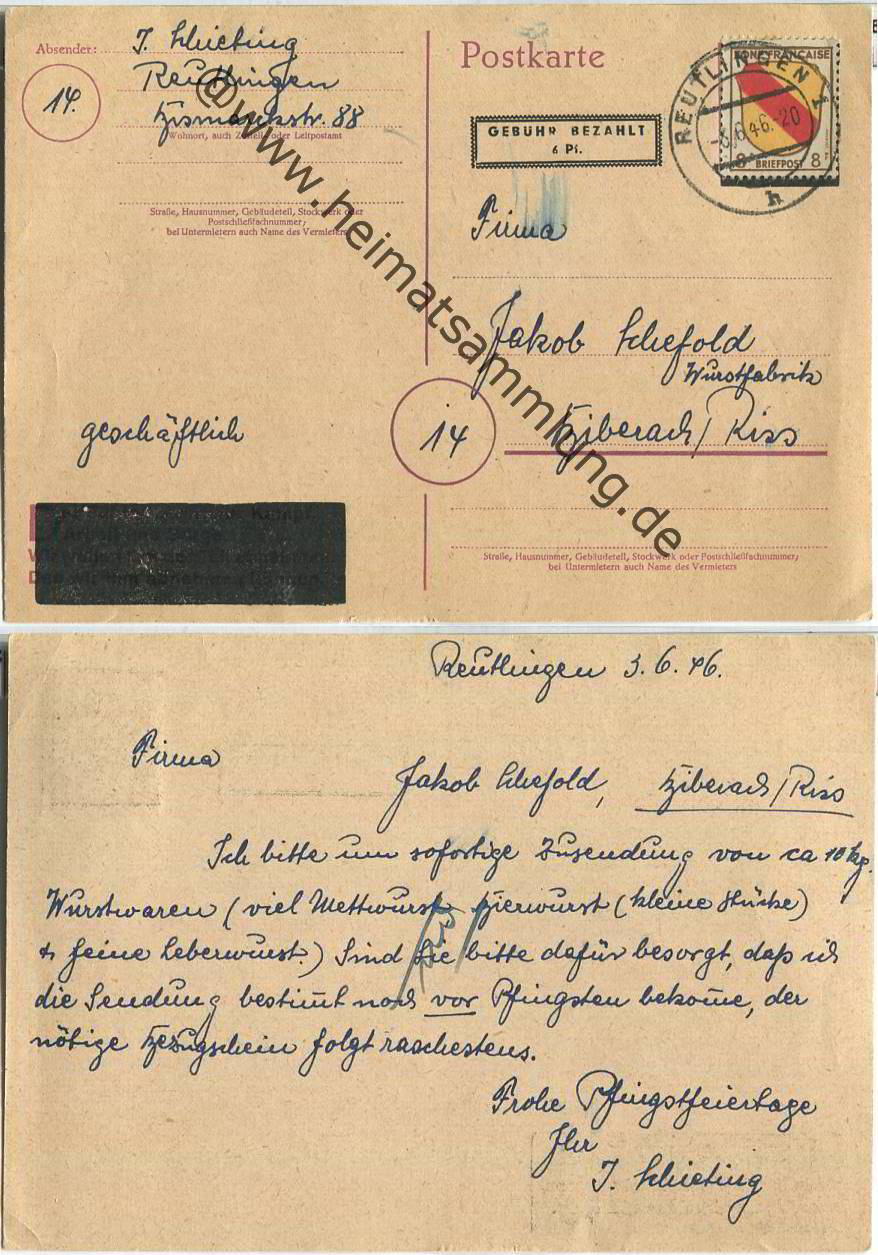 Absender: J. Schieting
Reutlingen
Bismarckstr. 88
Wohnort, auch Zustell- oder Leitpostamt
14.
Straße, Hausnummer, Gebäudeteil, Stockwerk oder
Postschließfachnummer;
bei Untermietern auch Name des Vermieters
Postkarte
GEBÜHR BEZAHLT
6 Pf.
ZONE FRANÇAISE
8 BRIEFPOST 8
REUTLINGEN 1
-3.6.46.-20
h
Firma
Jakob Schefold
Wurstfabrik
Biberach/Riss
14
geschäftlich
Straße, Hausnummer, Gebäudeteil, Stockwerk oder Postschließfachnummer;
bei Untermietern auch Name des Vermieters
@www.heimatsammlung.de
Reutlingen 3.6.46.
Firma
Jakob Schefold, Biberach/Riss
Ich bitte um sofortige Zusendung von ca 10 kg.
Wurstwaren (viel Mettwurst, Bierwurst (kleine Stücke)
& feine Leberwurst.) Sind Sie bitte dafür besorgt, daß ich
die Sendung bestim̅t noch vor Pfingsten bekom̅e, der
nötige Bezugschein folgt raschestens.
Frohe Pfingstfeiertage
Ihr
J. Schieting